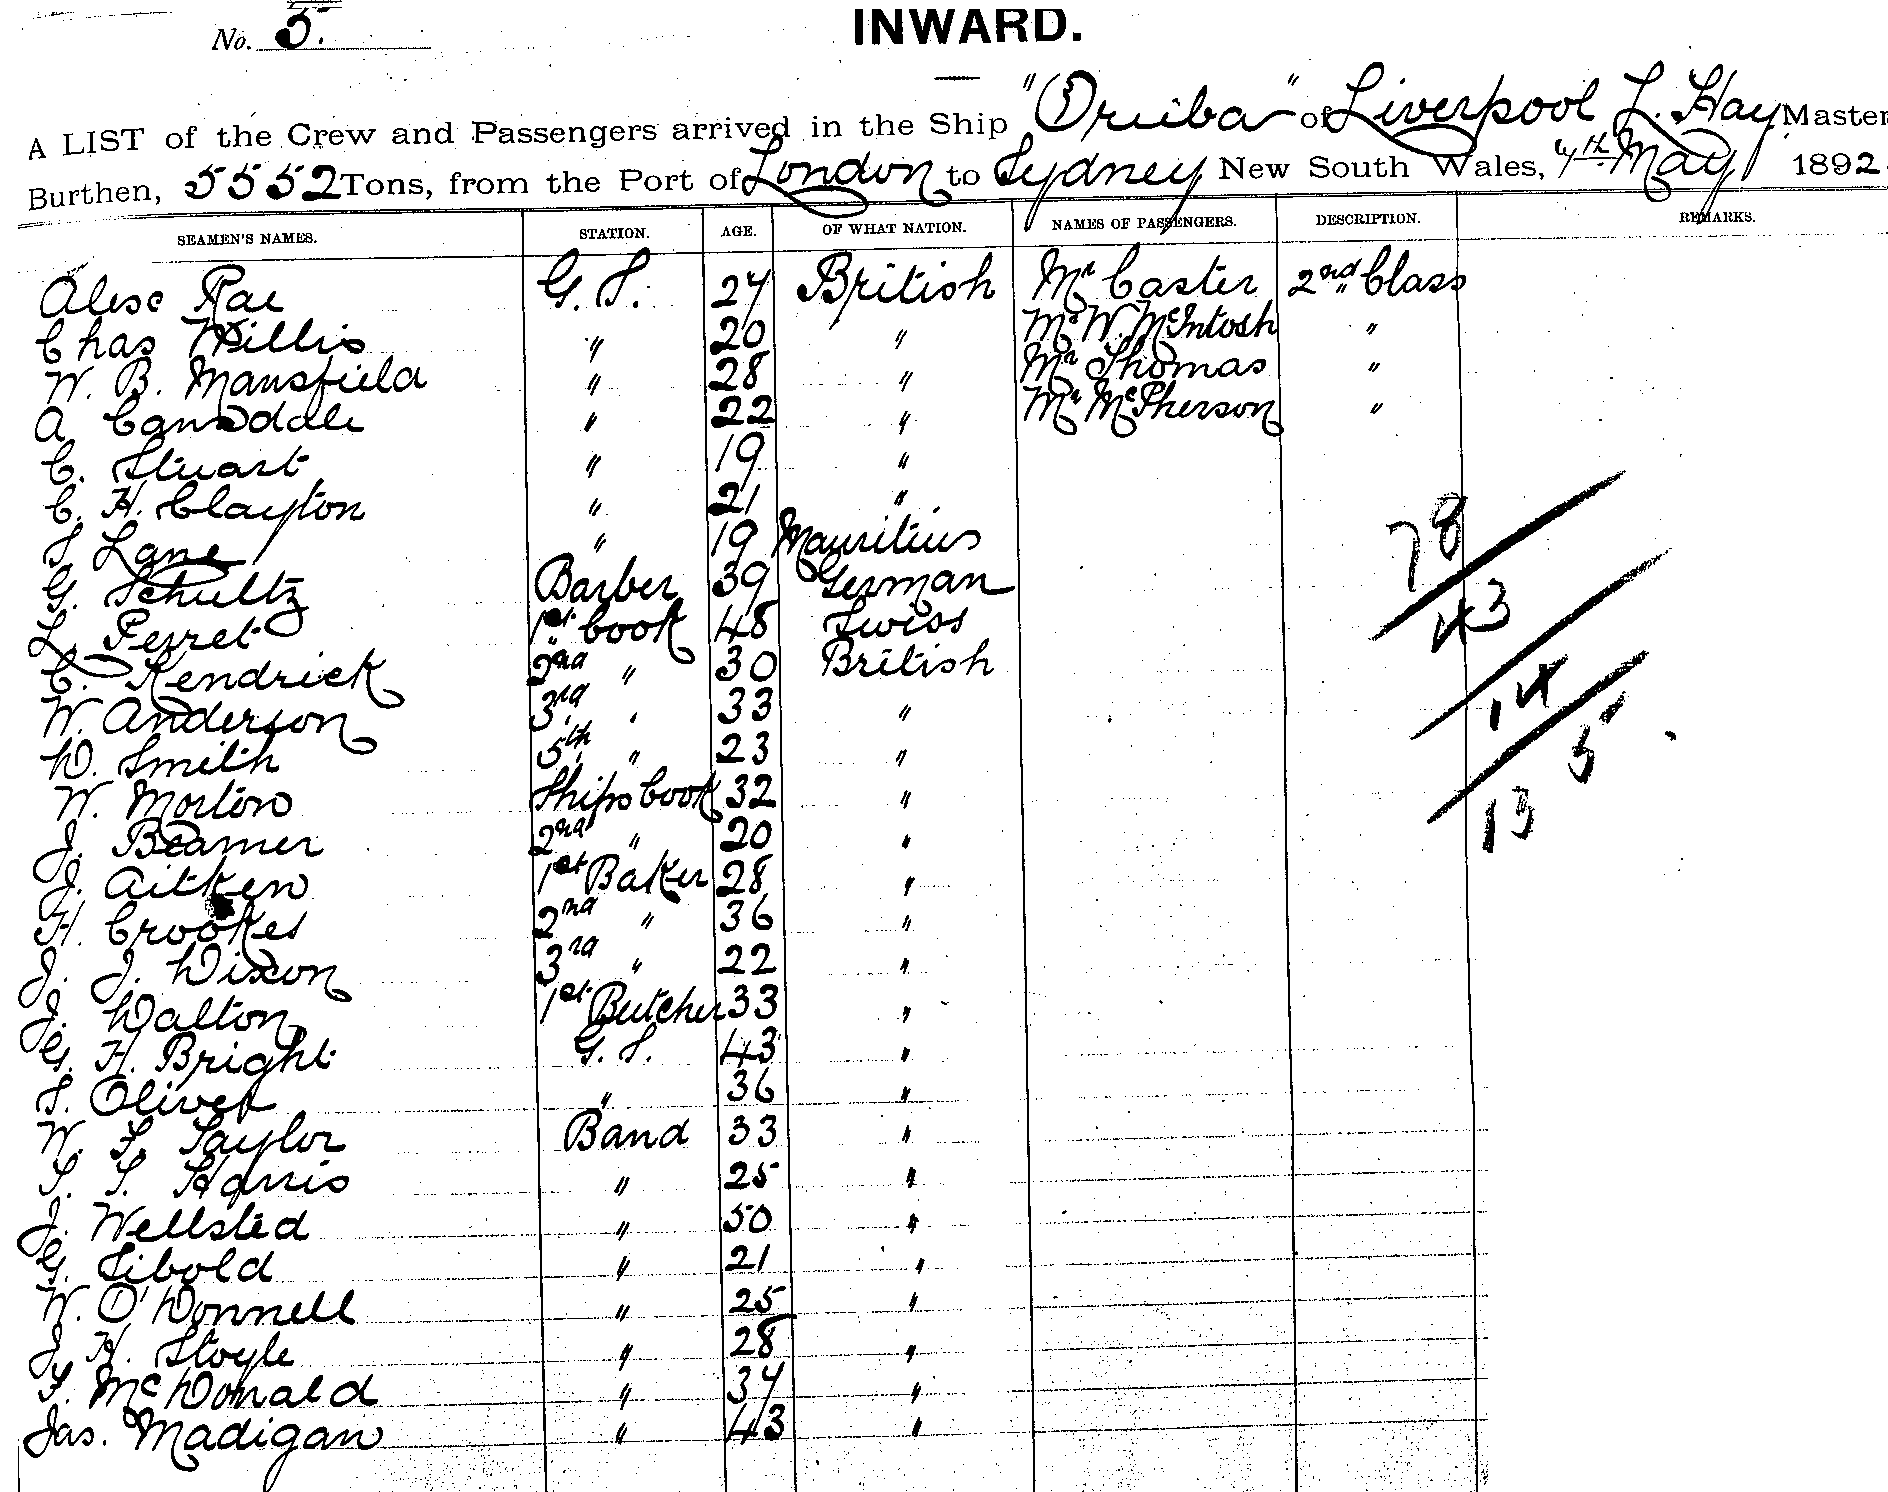 No. 5.
INWARD.
A LIST of the Crew and Passengers arrived in the Ship "Oruba" of Liverpool L. Hay Master
Burthen, 5552 Tons, from the Port of London to Sydney New South Wales, 7th May 1892.
SEAMEN'S NAMES. STATION. AGE. OF WHAT NATION. NAMES OF PASSENGERS. DESCRIPTION. REMARKS.
Alexr Rae G. S. 27 British Mr Caster 2nd Class
Chas Willis " 20 " Mr W. McIntosh "
W. B. Mansfield " 28 " Mr Thomas "
A Cansdale " 22 " Mr McPherson "
C. Stuart " 19 "
C. H. Clayton " 21 "
S Lane " 19 Mauritius
G. Schultz Barber 39 German
L. Perret 1st Cook 48 Swiss
C. Kendrick 2nd " 30 British
W. Anderson 3rd " 33 "
D. Smith 5th " 23 "
W. Morton Ships Cook 32 "
J. Beamer 2nd " 20 "
J. Aitken 1st Baker 28 "
H. Crookes 2nd " 36 "
J. J. Dixon 3rd " 22 "
J. Dalton 1st Butcher 33 "
G. H. Bright G. S. 43 "
S. Oliver " 36 "
W. S. Taylor Band 33 "
S. S. Harris " 25 "
J. Wellsted " 50 "
G. Sibold " 21 "
W. O'Donnell " 25 "
J. H. Stoyle " 28 "
S. McDonald " 37 "
Jas. Madigan " 43 "
78
43
14
5
13